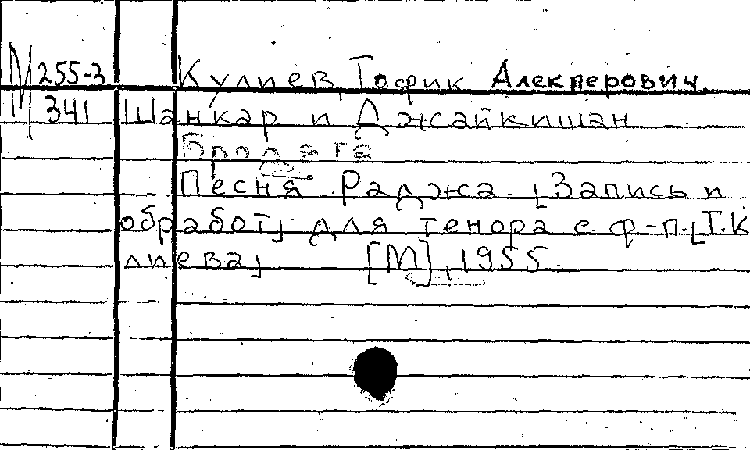 М 255-3 Кулиев, Тофик Алекперович.
341 Шанкар и Джайкишан
Бродяга
Песня Раджа. [Запись и
обработ] для тенора с ф-п. [Т. К
лиева]
[М], 1955